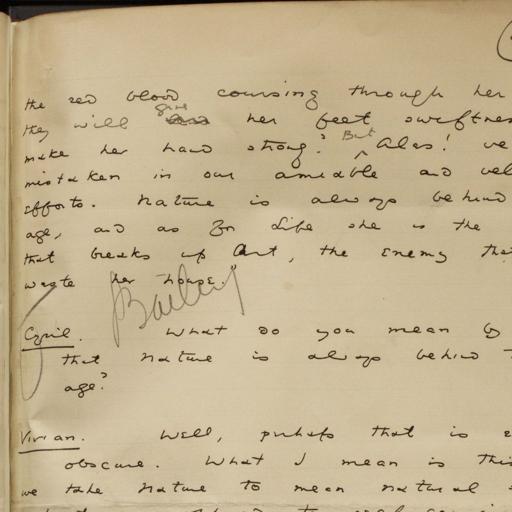 the red blood coursing through her
they will give her feet swiftness
make her hand strong? But Alas! we
mistaken in our amiable and wel
efforts. Nature is always behind
age, and as for Life she is the
that breaks up Art, the enemy tha
waste her house."
Bailey
Cyril. What do you mean by
that Nature is always behind
age?
Vivian. Well, perhaps that is
obscure. What I mean is this
we take Nature to mean natural